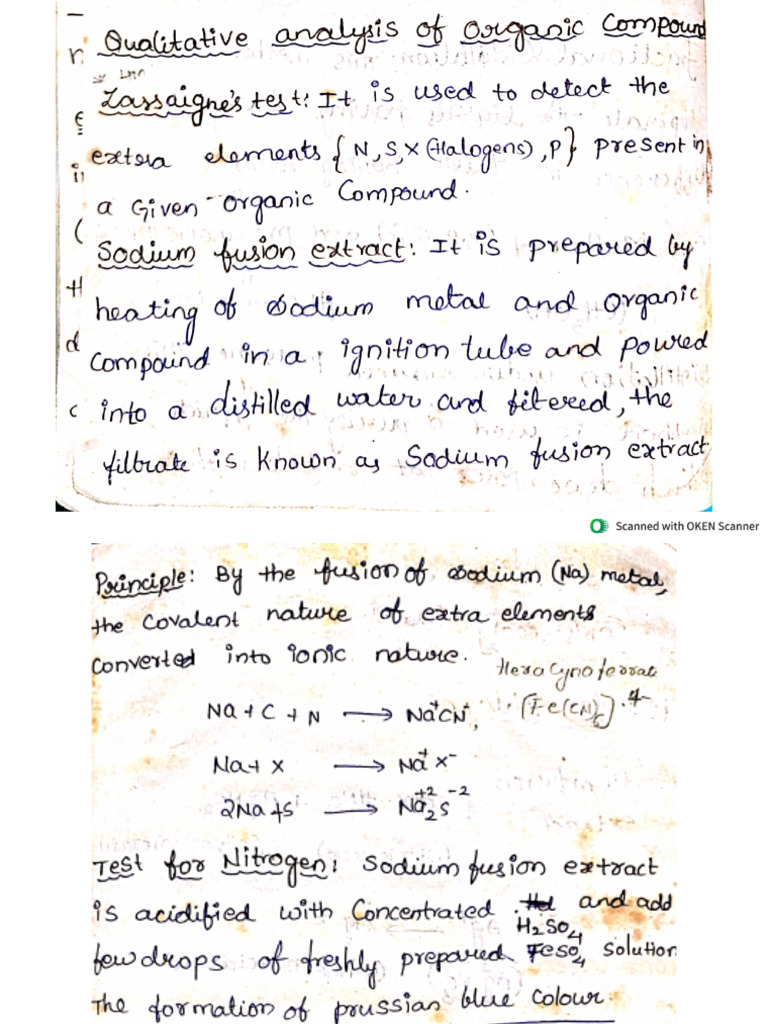 Qualitative analysis of Organic Compound
Lassaigne's test: It is used to detect the
extra elements {N, S, X (Halogens), P} present in
a Given organic Compound.
Sodium fusion extract: It is prepared by
heating of sodium metal and organic
Compound in a ignition tube and poured
into a distilled water and filtered, the
filtrate is known as Sodium fusion extract
Scanned with OKEN Scanner
Principle: By the fusion of sodium (Na) metal,
the Covalent nature of extra elements
Converted into ionic nature.
Hexa Cynoferrate
Na + C + N → Na⁺CN⁻, [Fe(CN)₆]⁴⁻
Na + X → Na⁺X⁻
2Na + S → Na₂⁺²S⁻²
Test for Nitrogen: Sodium fusion extract
is acidified with Concentrated H₂SO₄ and add
few drops of freshly prepared FeSO₄ solution
The formation of prussian blue colour.